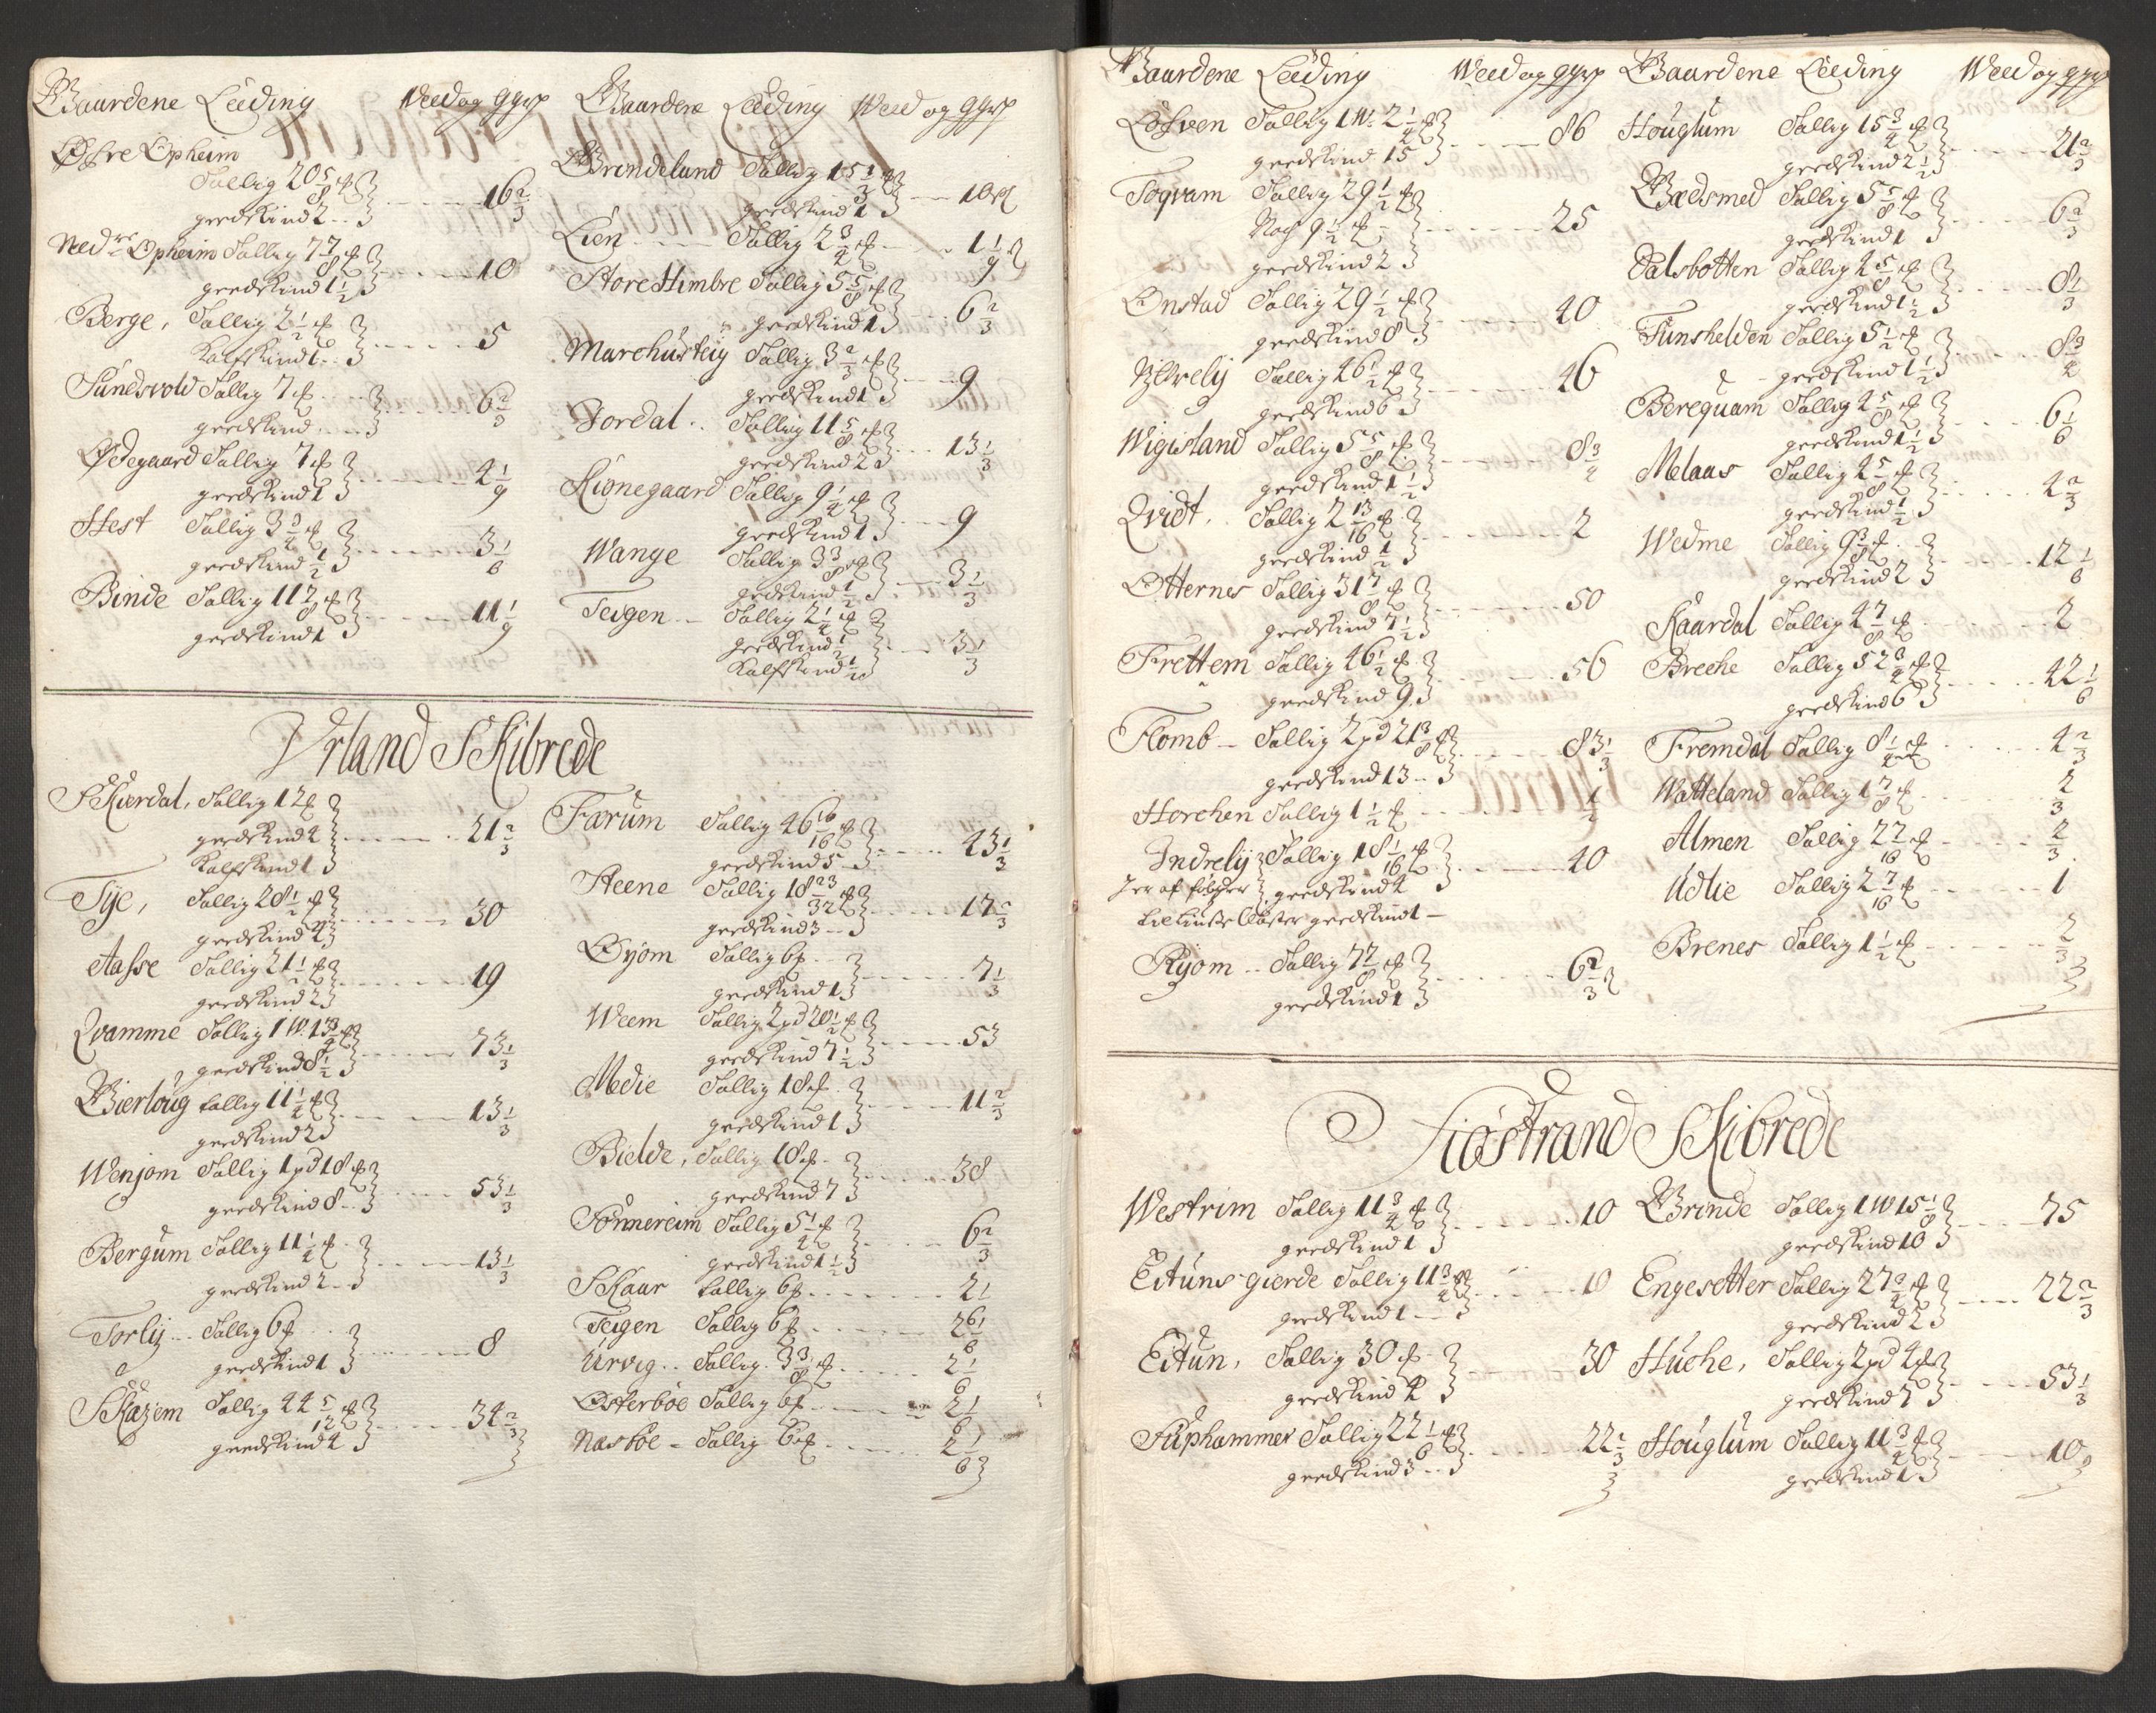 Gaardene Leeding Weed og
Øfre Opheim
Tallig 20 5/8
geedskind 2 16 2/3
Nedre Opheim Tallig 7 7/8
geedskind 1 1/2 10
Berge, Tallig 2 1/2
Kalfskind 1 5
Sundsvold Tallig 7
geedskind 6 2/3
Ødegaard Tallig 7
geedskind 1 4 1/9
Hest Tallig 3 3/4
geedskind 1/2 3 1/6
Binde Tallig 11 2/8
geedskind 1 11 1/9
Gaardene Leeding Weed og
Grindeland Tallig 15 1/3
geedskind 1 10
Lien Tallig 2 3/4 1 1/9
Store Himbre Tallig 5 5/8
geedskind 1 6 2/3
Marchusteig Tallig 3 2/3
geedskind 1 9
Jordal Tallig 11 5/8
geedskind 2 13 1/3
Kionegaard Tallig 9 1/4
geedskind 1 9
Wange Tallig 3 3/8
gedskind 1/2 3 1/3
Teigen Tallig 2 1/4
geedskind 1/2
Kalfskind 1/2 3 1/3
Urland Skibrede
Skierdal, Tallig 12
geedskind 4
Kalfskind 1 21 2/3
Tye, Tallig 28 1/2
geedskind 4 30
Aasse Tallig 21 1/2
geedskind 2 19
Qvamme Tallig 1 W. 13 3/4
geedskind 8 1/2 73 1/3
Gierloug tallig 11 1/4
geedskind 2 13 1/3
Wenjom Tallig 1 pd 18
geedskind 8 53 1/3
Bergum Tallig 11 1/4
geedskind 2 13 1/3
Torlij Tallig 6
geedskind 1 8
Skajem Tallig 44 5/12
geedskind 4 34 2/3
Farum Tallig 46
geedskind 5 43 1/3
Steene Tallig 18 23/32
geedskind 3 17 2/3
Øyom Tallig 6
geedskind 1 7 1/3
Weem Tallig 2 pd 20 1/2
geedskind 7 1/2 53
Medie Tallig 18
geedskind 1 11 2/3
Bielde, Tallig 18
geedskind 7 38
Sonnereim Tallig 5 1/4
geedskind 1 1/2 6 2/3
Skaar tallig 6 2 1/6
Teigen Tallig 6 2 1/6
Urvig Tallig 3 3/8 2 1/6
Østerboe Tallig 6 2 1/6
Nasboe Tallig 6 2 1/6
Gaardene Leeding Weed og
Lofven Tallig 1 W: 2 1/4
geedskind 15 86
Toqvam Tallig 29 1/2
Noch 9 1/2
geedskind 2 25
Onstad Tallig 29 1/2
geedskind 8 40
Tallig 46 1/2
geedskind 6 46
Wigisland Tallig 5 5/8
geedskind 1 1/2 8 3/4
Qvidt, Tallig 2 13/16
geedskind 1/2 2
Otternes Tallig 31 7/8
geedskind 7 1/2 50
Frettem Tallig 46 1/2
geedskind 9 56
Flomb Tallig 2 pd 21 3/8
geedskind 13 83 1/3
Horchen Tallig 1 1/2 1/2
Indrelij Tallig 18 1/16
geedskind 4 40
geedskind 1
Ryom Tallig 7 7/8
geedskind 1 6 2/3
Gaardene Leeding Weed og
Houglum Tallig 15 3/4
geedskind 2 1/2 21 2/3
Bedsmed Tallig 5 5/8
geedskind 1 6 2/3
Dalsbotten Tallig 4 5/8
geedskind 1 1/2 8 1/3
Tunshelden Tallig 5 1/2
geedskind 1 1/2 8 3/4
Berequam Tallig 4 5/8
geedskind 1 1/2 6 1/6
Melaas Tallig 4 5/8
geedskind 1/2 4 2/3
Wedme Tallig 9 3/8
geedskind 2 12 1/6
Kaardal Tallig 4 7/8 2
Breche Tallig 52 3/4
geedskind 6 42 1/6
Fremdal Tallig 8 1/4 4 2/3
Watteland Tallig 1 7/8 2/3
Almen Tallig 2 7/16 2/3
Udlie Tallig 2 7/16 1
Brenes Tallig 1 1/2 2/3
Fiøstrand Skibrede
Westrim Tallig 11 3/4
geedskind 1 10
Eituns gierde Tallig 11 3/4
geedskind 1 10
Eitun, Tallig 30
geedskind 4 30
Fuphammer Tallig 22 1/6
geedskind 3 22 2/3
Grinde Tallig 1 W 15 1/8
geedskind 10 75
Engesetter Tallig 27 3/4
geedskind 2 22 2/3
Huche, Tallig 2 pd 4
geedskind 7 53 1/3
Houglum Tallig 11 3/4
geedskind 1 10